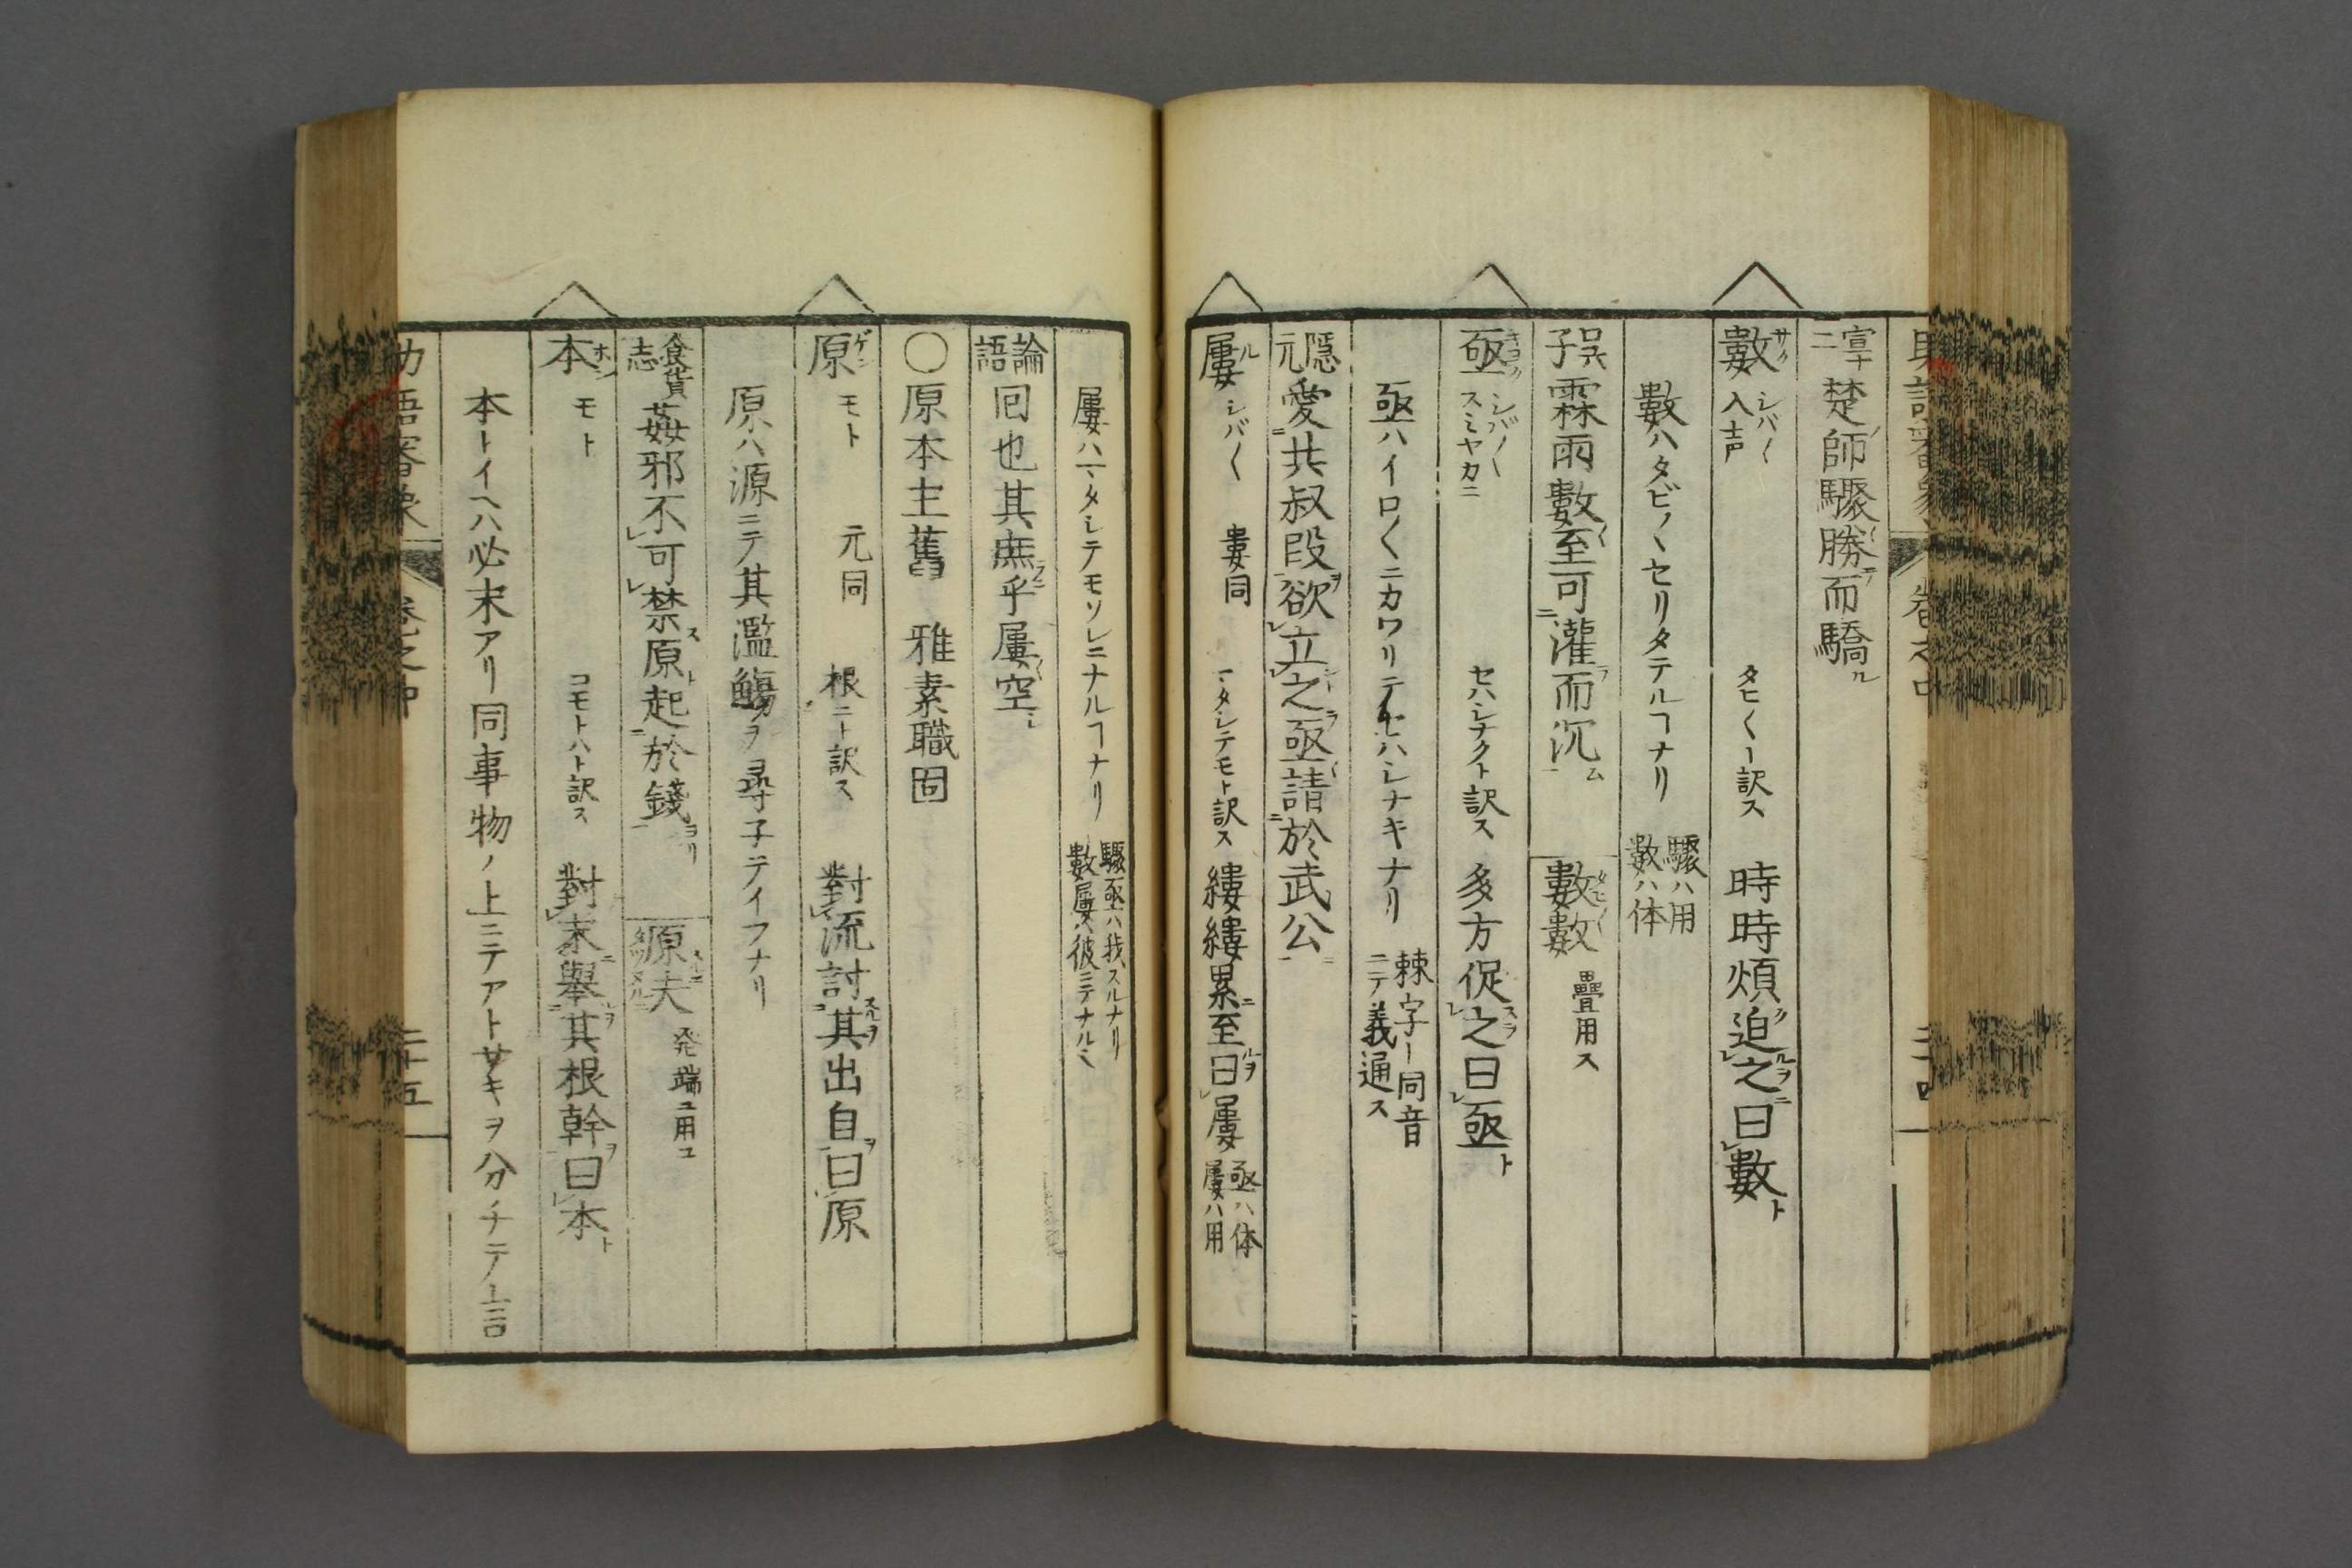 宣十二 楚師驟勝而驕ル
數 サク シバ〳〵 入声 タヒ〳〵ト訳ス 時時煩迫之曰數ト
數ハタビ〳〵セリタテルヿナリ 驟ハ用 數ハ体
呂氏子 霖雨數至可灌而沉ム 數數 疊用ス
亟 キヨク シバ〳〵 スミヤカニ セハシナクト訳ス 多方促之曰亟ト
亟ハイロ〳〵ニカワリテセハシナキナリ 棘字ト同音ニテ義通ス
隠元 愛共叔段欲立之亟請於武公
屢 ル シバ〳〵 婁同 マタシテモト訳ス 縷縷累至曰屢 亟ハ体 屢ハ用
屢ハマタシテモソレニナルヿナリ 驟亟ハ我スルナリ 數屢ハ彼ニテナルミ
論語 回也其庶乎屢空シ
〇原本主舊 雅素職固
原 ゲン モト 元同 根ニト訳ス 對流討其出自曰原
原ハ源ニテ其濫觴ヲ尋子テイフナリ
食貨志 姦邪不可禁原起於錢 原夫 発端ニ用ユ
本 ホン モト コモトハト訳ス 對末舉其根幹曰本ト
本トイヘハ必末アリ同事物ノ上ニテアトサキヲ分チテ言
助語審象 巻之中 二十五